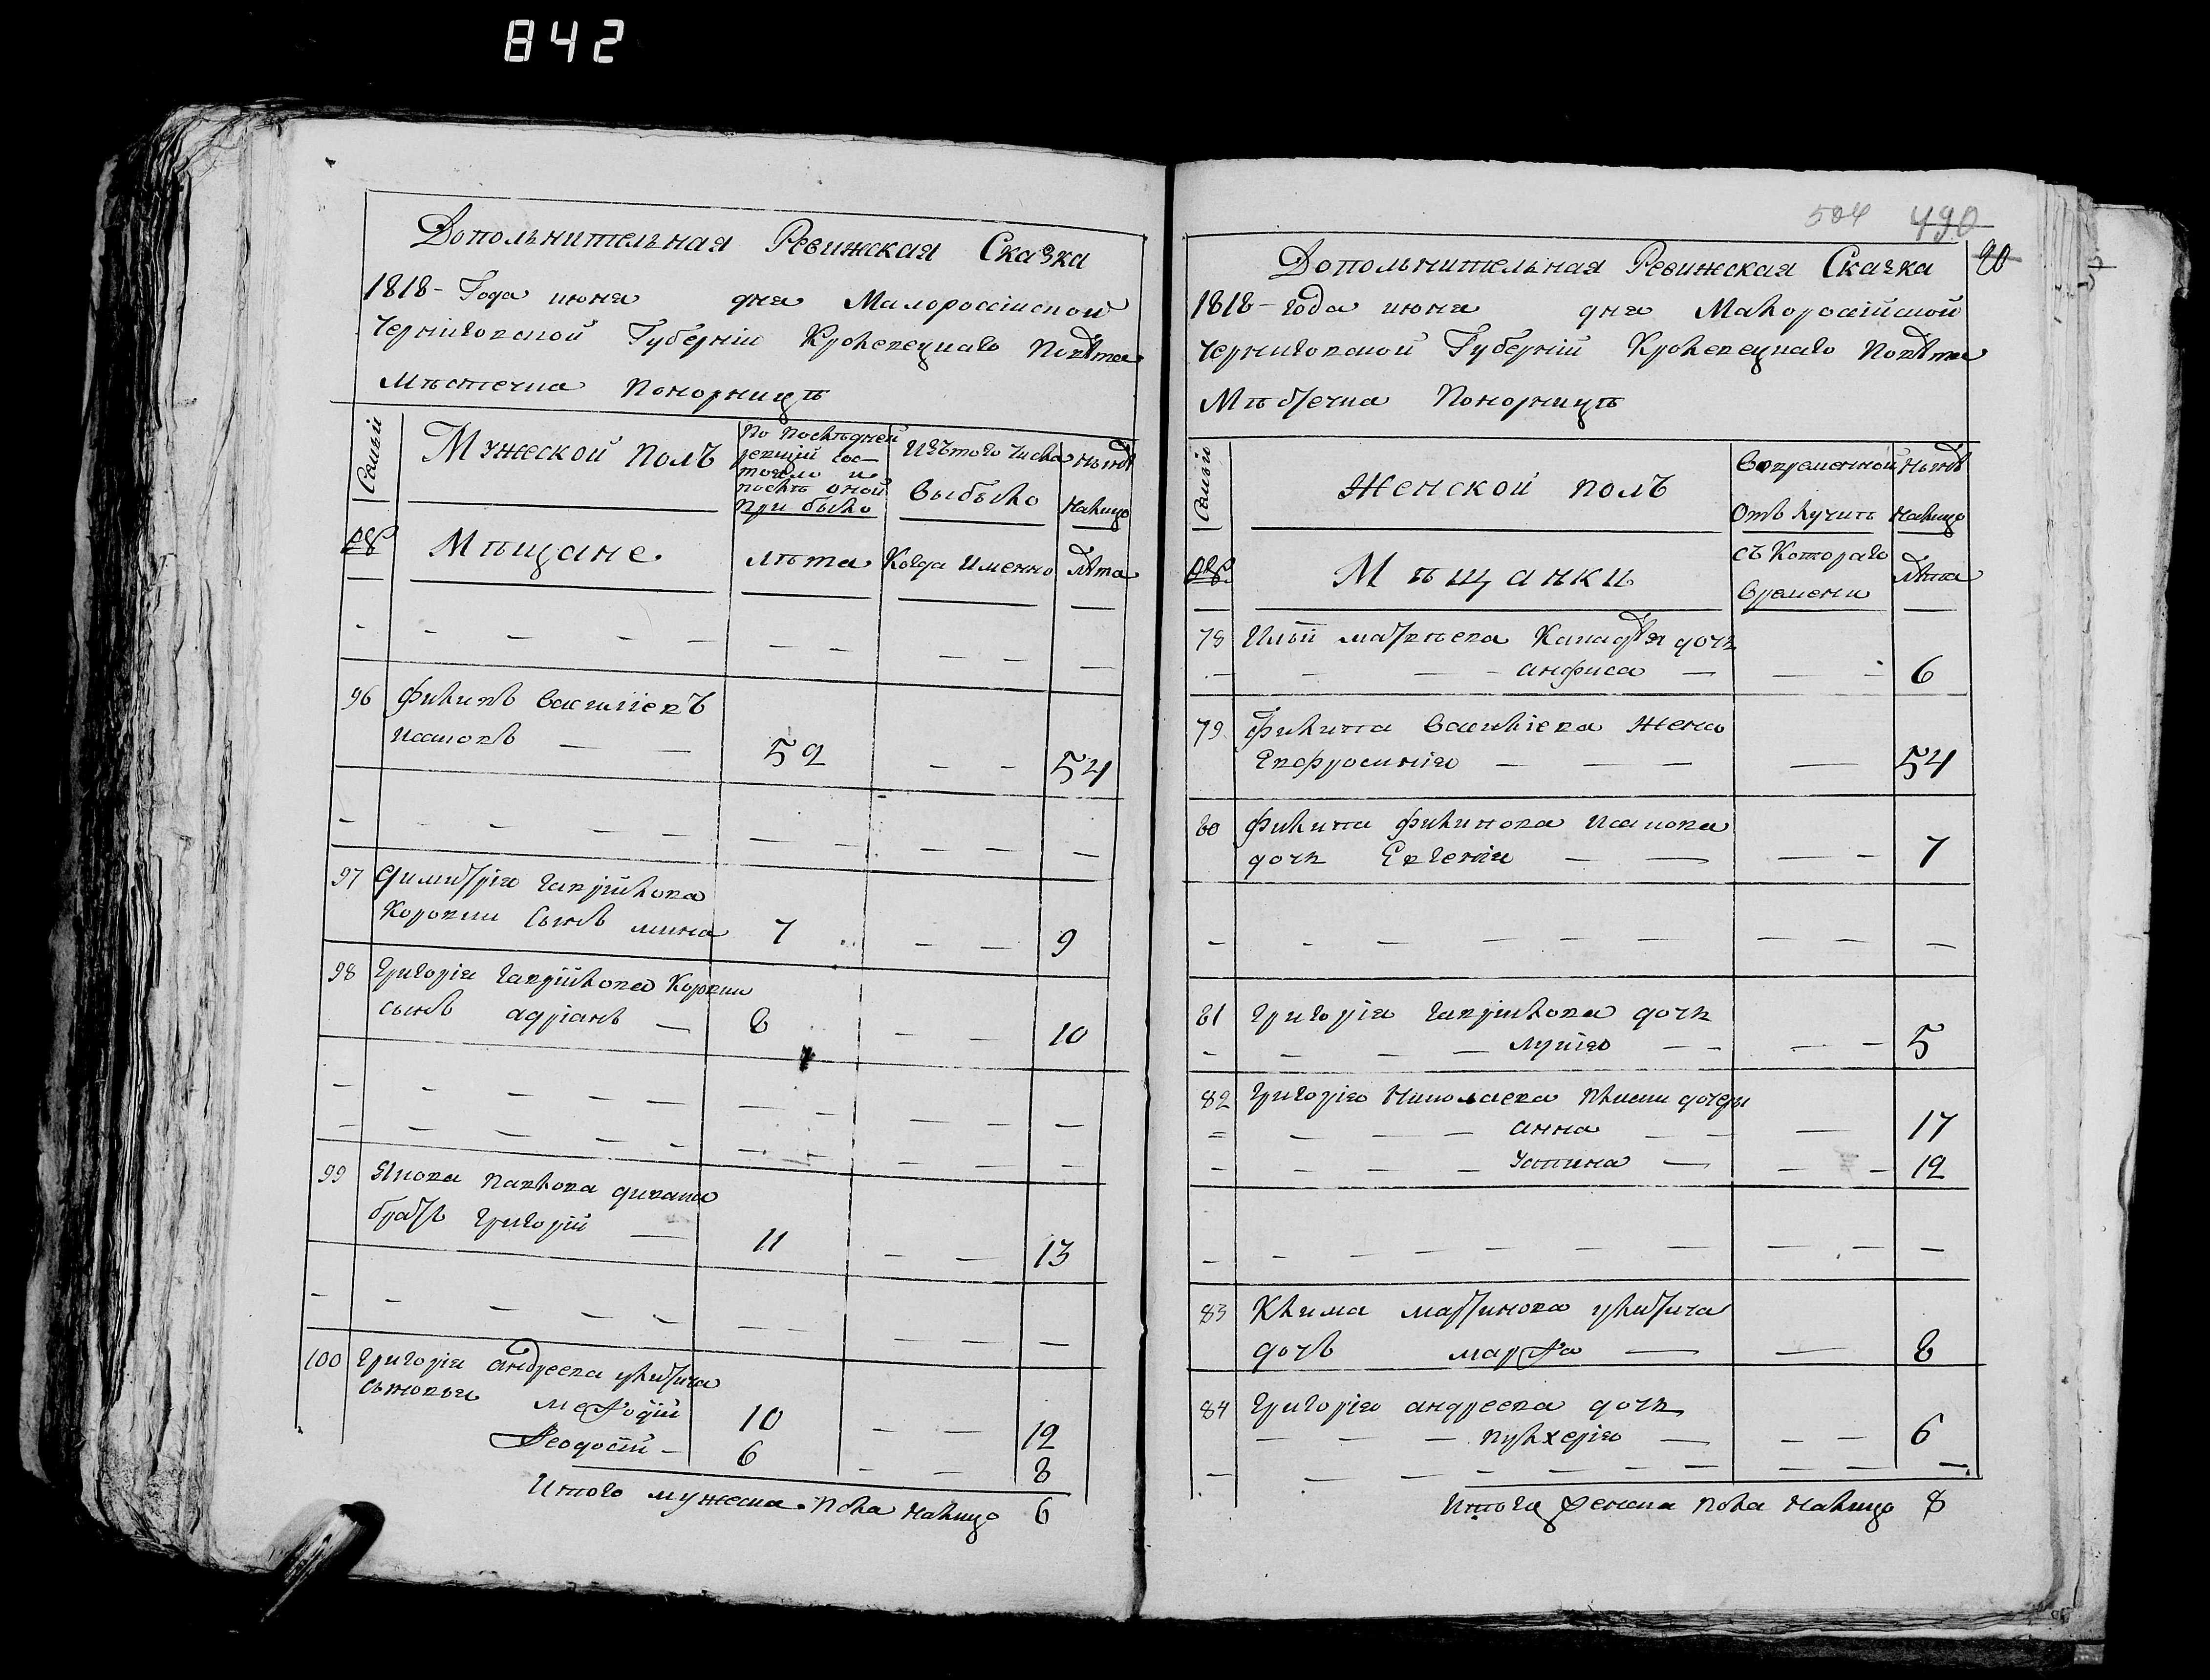 842
Дополнительная Ревижская Сказка
1818- Года июня дня Малороссійской
Черниговской Губерніи Кролевецкаго Повѣта
Мѣстечка Понорницѣ
Семьи
Мужеской полъ
По послѣдней
ревизіи сос-
тояло и
послѣ оной
прибыло
Изъ того числа
выбыло
Нынѣ
налицо
№
Мѣщане.
Лѣта
Когда Именно
Лѣта
96 Филипъ Василіевъ
52 54
97 Димитрія Гаврилова
Коровки сынъ мина 7 9
98 Григорія Гаврилова Коровки
сынъ адріанъ 8 10
99 Якова Павлова
братъ Григорій 11 13
100 Григорія андреева улитича
сыновья мефодій 10 12
Феодосій 6 8
Итого мужеска пола налицо 6
504 490
90
Дополнительная Ревижская Сказка
1818- года июня дня Малороссійской
Черниговской Губерніи Кролевецкаго Повѣта
Мѣстечка Понорницѣ
Семьи
Женской полъ
Во временной
отълучкѣ
Нынѣ
налицо
№
Мѣщанки
съ Котораго
времени
Лѣта
78 Ильи матвѣева дочь
анфиса 6
79 Филипа Василіева жена
Евфросинія 54
80 Филипа Филипова
дочь Евгенія 7
81 Григорія Гаврилова дочь
Лукія 5
82 Григорія Николаева дочери
анна 17
Устина 12
83 Клима мартинова улитича
дочь марфа 8
84 Григорія андреева дочь
пулхерія 6
Итого женска пола налицо 8